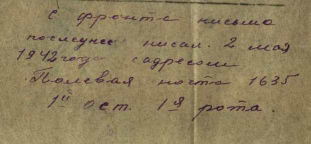 с фронта письмо
последнее писал. 2 мая
1942 года с адресом
Полевая почта 1635
1й ост. 1я рота.